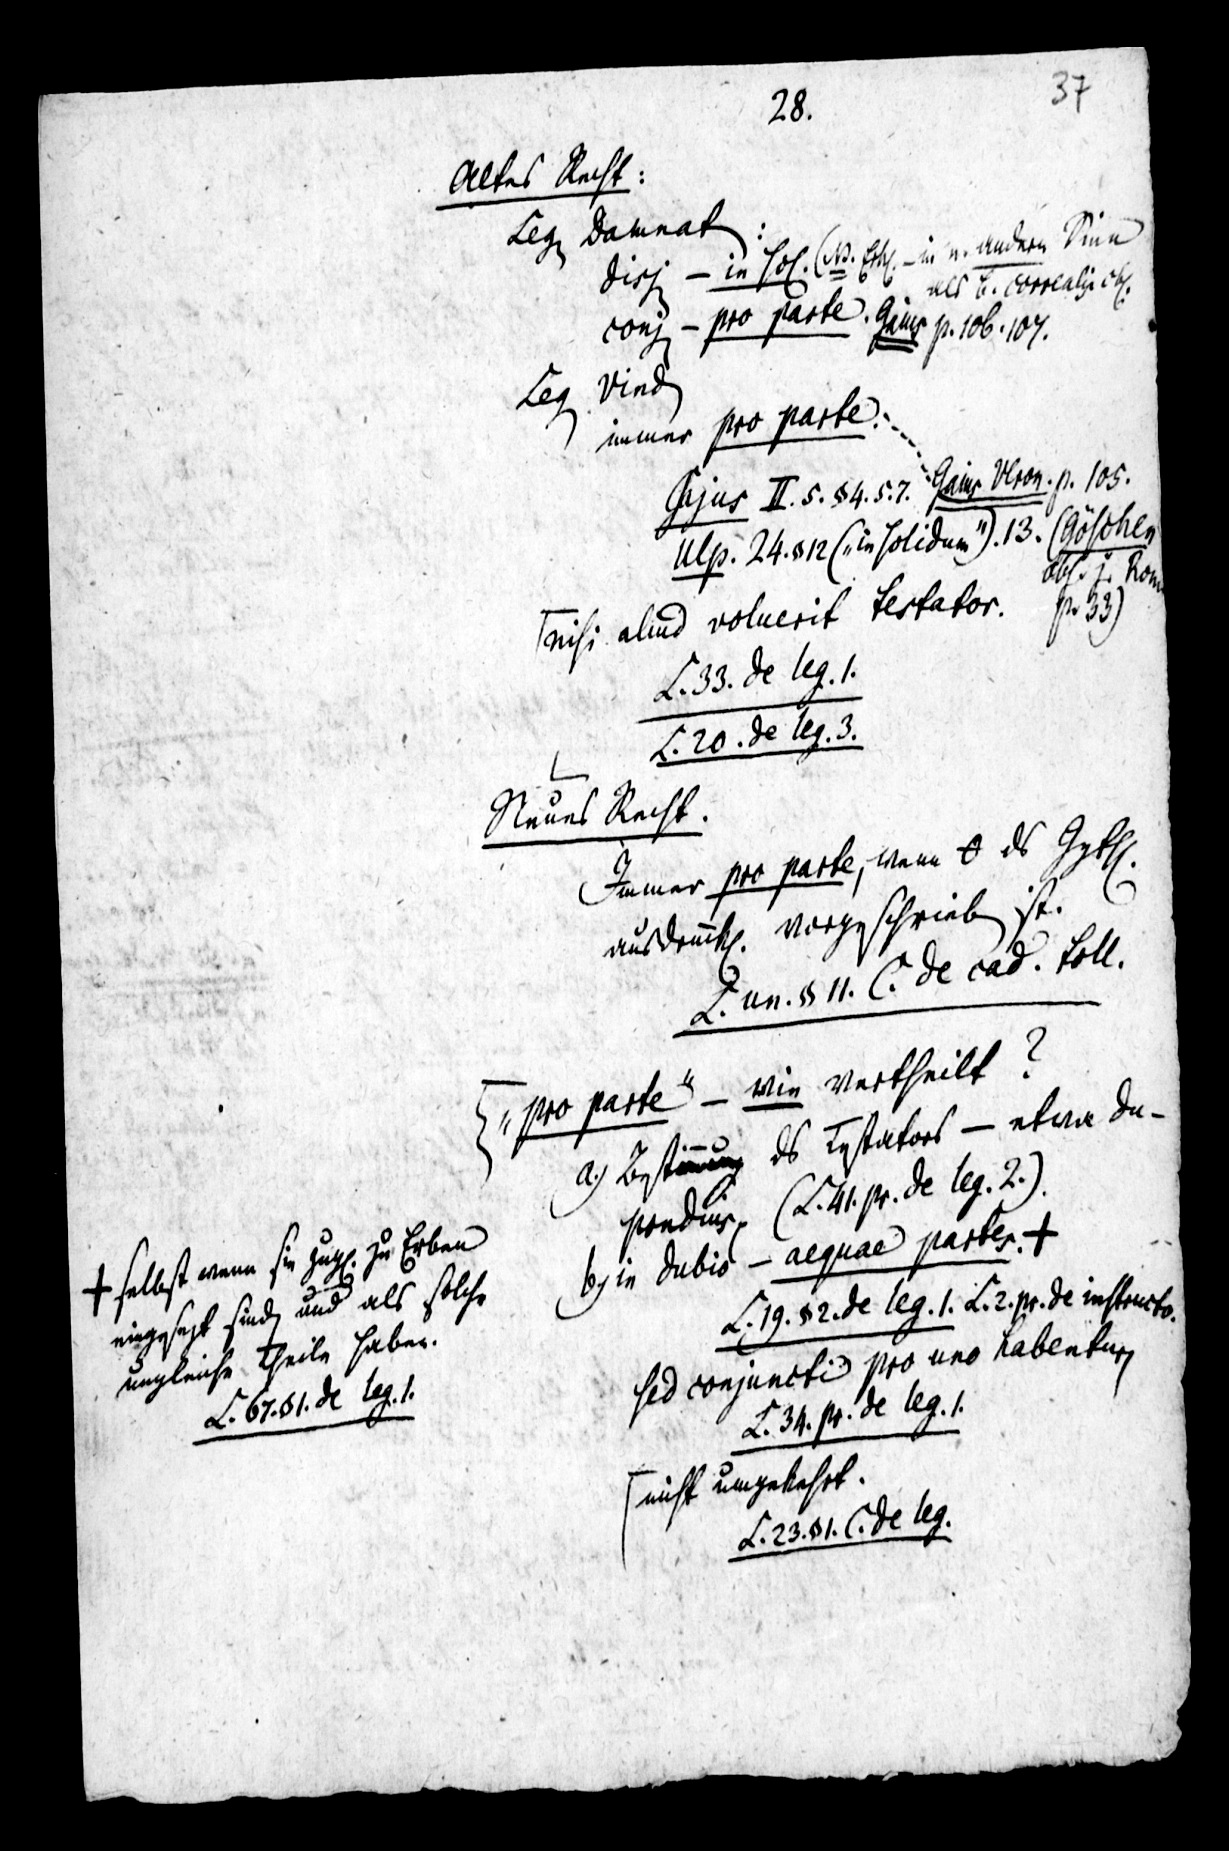 37
28.
Altes Recht:
Leg. Damnat:
disj. – in sol. (NB. – in e. andern Sinn
als b. correal
conj. – pro parte. Gajus p. 106. 107.
Leg. Vind.
immer pro parte.
Gajus II. 5. §4. 5. 7. Gajus Veron. p. 105.
Ulp. 24. §12 („in solidum“). 13. (Göschen
obs. j. Rom.
p. 33)
nisi aliud voluerit testator.
L. 33. de leg. 1.
L. 20. de leg. 3.
Neues Recht.
Immer pro parte, wenn ds Gegth.
ausdrückl. vorgeschrieb. ist.
L. un. §11. C. de cad. toll.
„pro parte“ – wie vertheilt?
a.) Bestimmung ds Testators – etwa du-
pondius, (L. 41. pr. de leg. 2.).
b.) in dubio – aequae partes. +
L. 19. §2. de leg. 1. L. 2. pr. de instructo.
sed conjuncti pro uno habentur,
L. 34. pr. de leg. 1.
nicht umgekehrt.
L. 23. §1. C. de leg.
+ selbst wenn sie zugl. zu Erben
eingesetzt sind, und als solche
ungleiche Theile haben.
L. 67. §1. de leg. 1.